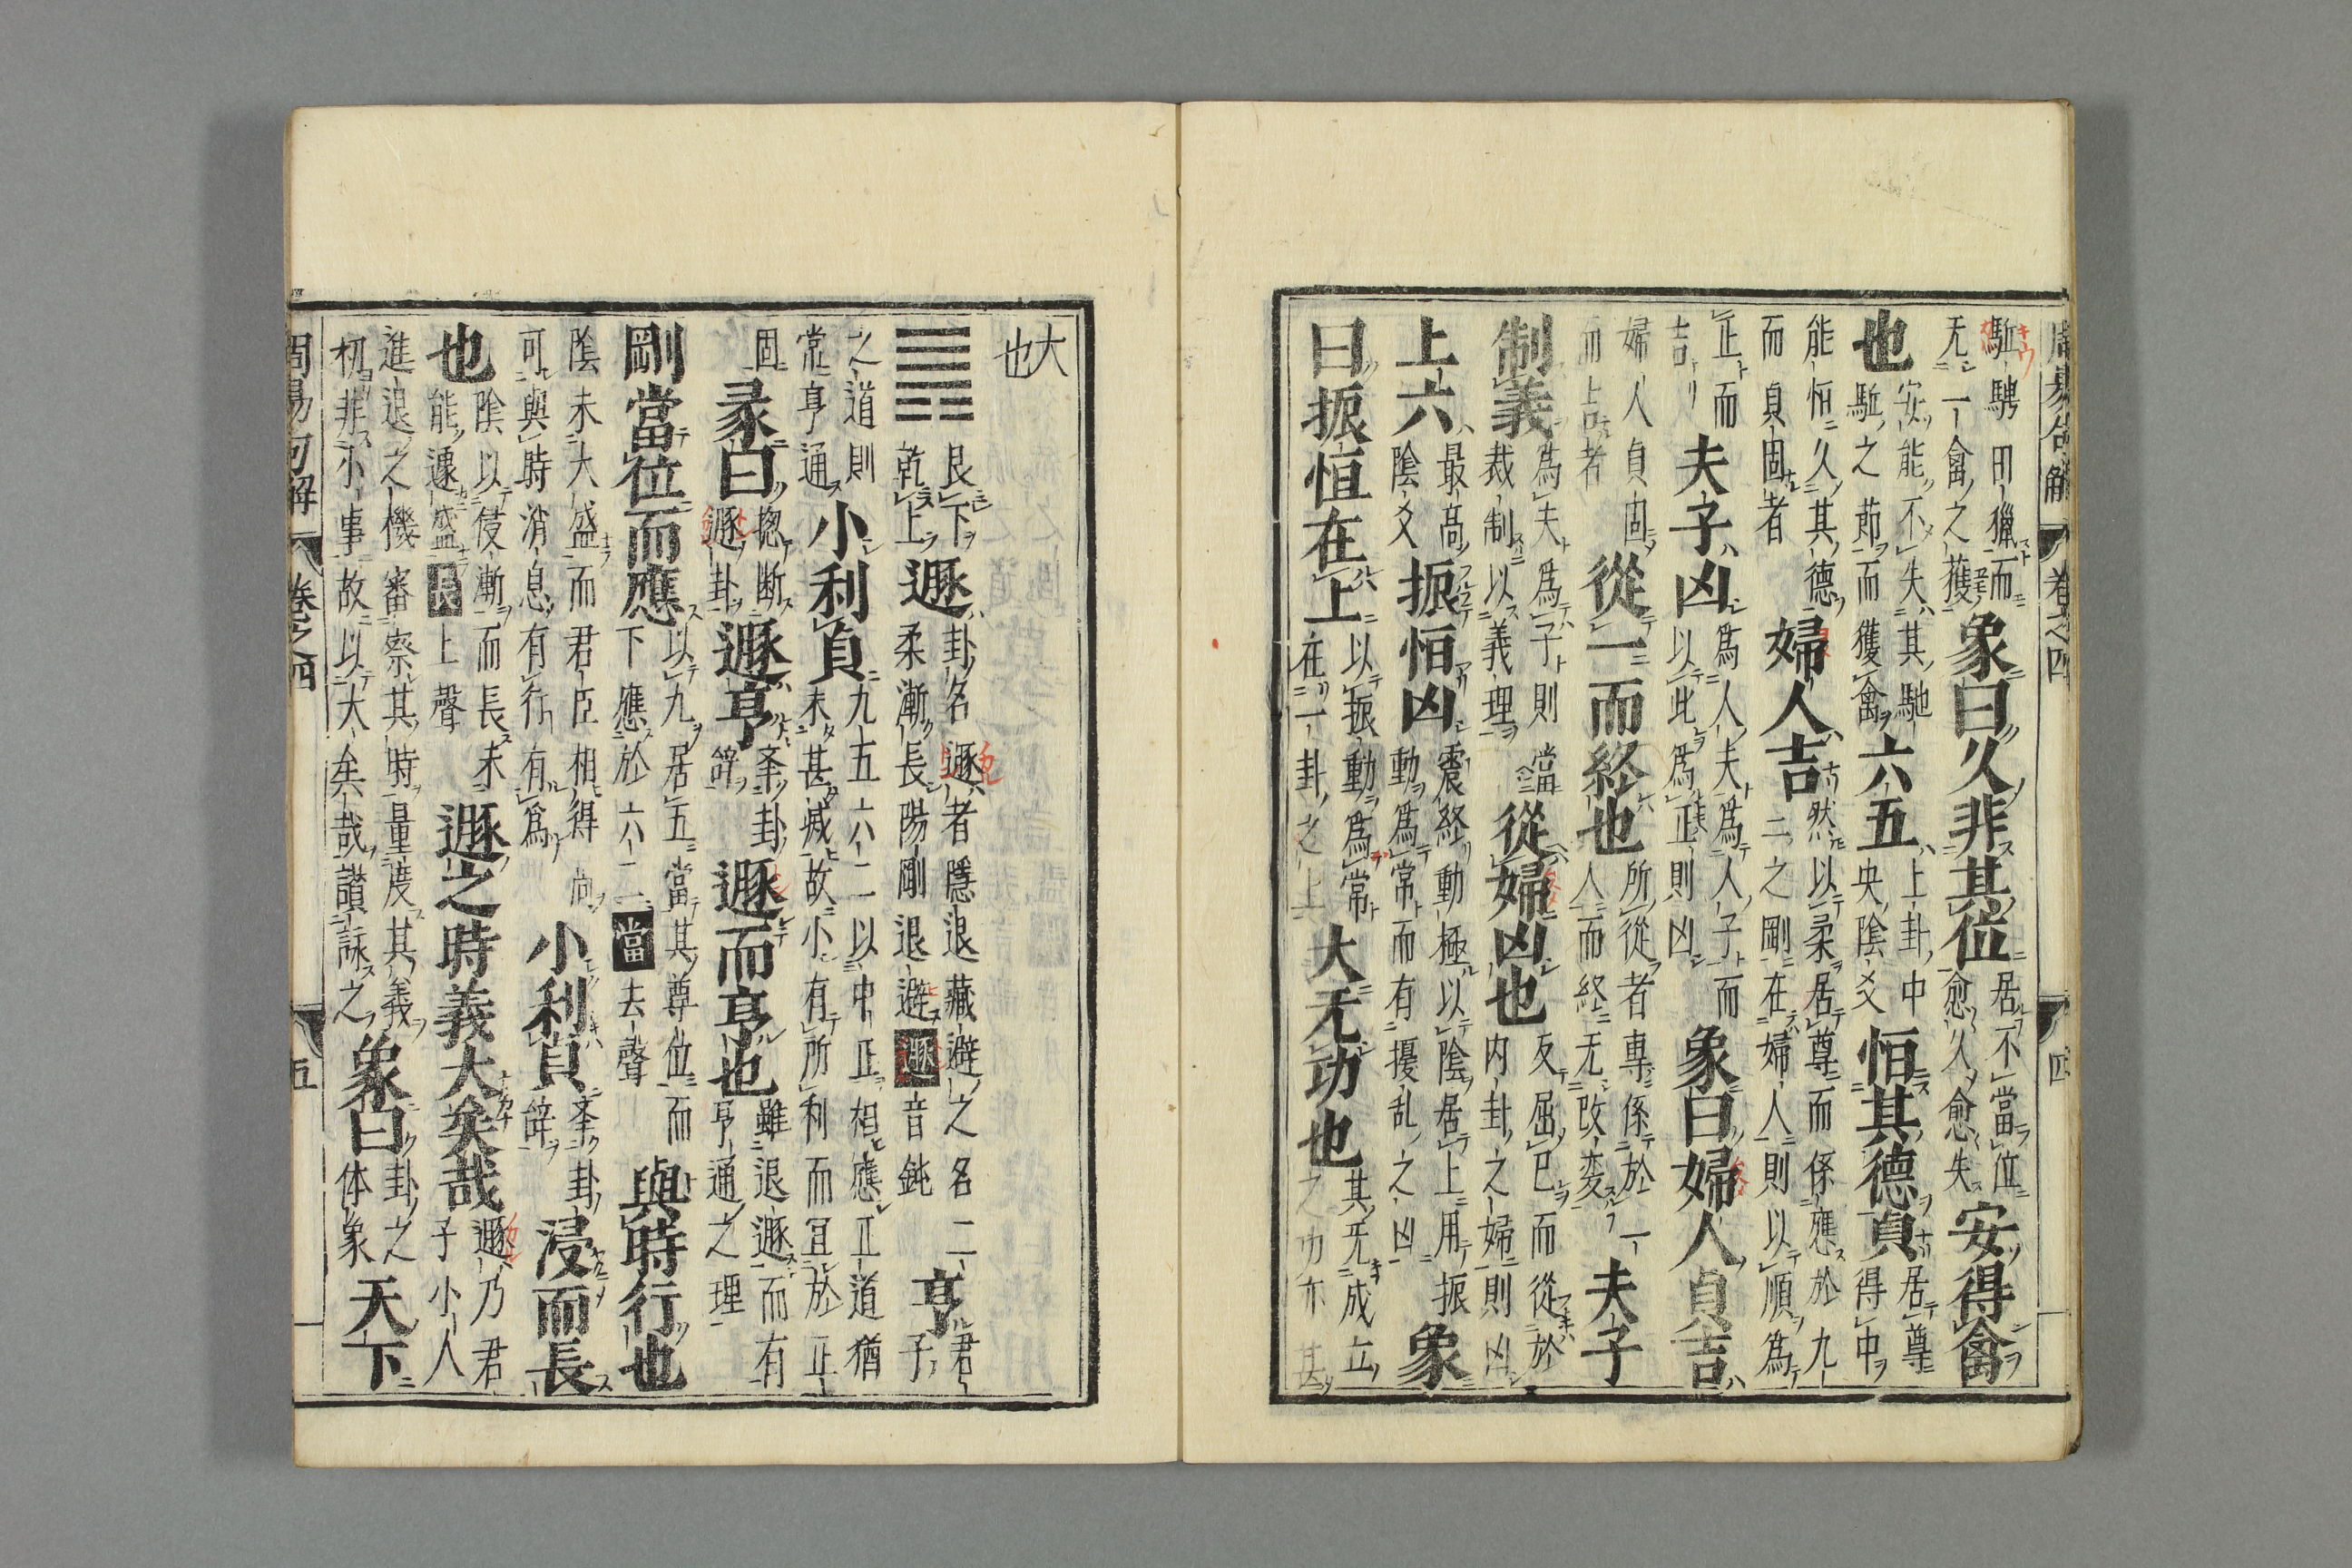 周易句解 卷之四 四
駈騁田獵而
无一禽之獲
象曰久非其位
居不當位
愈久愈失
安得禽
也
安能不失其馳
駈之節而獲禽
六五
上卦中
央陰爻
恒其德貞
居尊
得中
能恒久其德
而貞固者
婦人吉
然以柔居尊而係應於九
二之剛在婦人則以順為
正而
吉
夫子凶
為人夫為人子而
以此為正則凶
象曰婦人貞吉
婦人貞固
而吉者
從一而終也
所從者専係於一
人而終无改変
夫子
制義
為夫為子則當
裁制以義理
從婦凶也
反屈已而從於
内卦之婦則凶
上六
最高
陰爻
振恒凶
震終動極以陰居上用振
動為常而有擾乱之凶
象
曰振恒在上
以振動為常
在一卦之上
大无功也
其无成立
之功亦甚
大
也
艮下
乾上
遯
卦名遯者隱退藏避之名二
柔漸長陽剛退避遯音鈍
亨
君
子
之道則
常亨通
小利貞
九五六二以中正相應正道猶
未甚滅故小有所利而冝於正
固
彖曰
揔断
遯卦
遯亨
夲卦
辞
遯而亨也
雖退遯而有
亨通之理
剛當位而應
以九居五當其尊位而
下應於六二當去聲
與時行也
陰未大盛而君臣相得尚
可與時消息有行有為
小利貞
夲卦
辞
浸而長
也
陰以侵漸而長未
能遽盛長上聲
遯之時義大矣哉
遯乃君
子小人
進退之機審察其時量度其義
初非小事故以大矣哉讃詠之
象曰
卦之
体象
天下
周易句解 卷之四 五